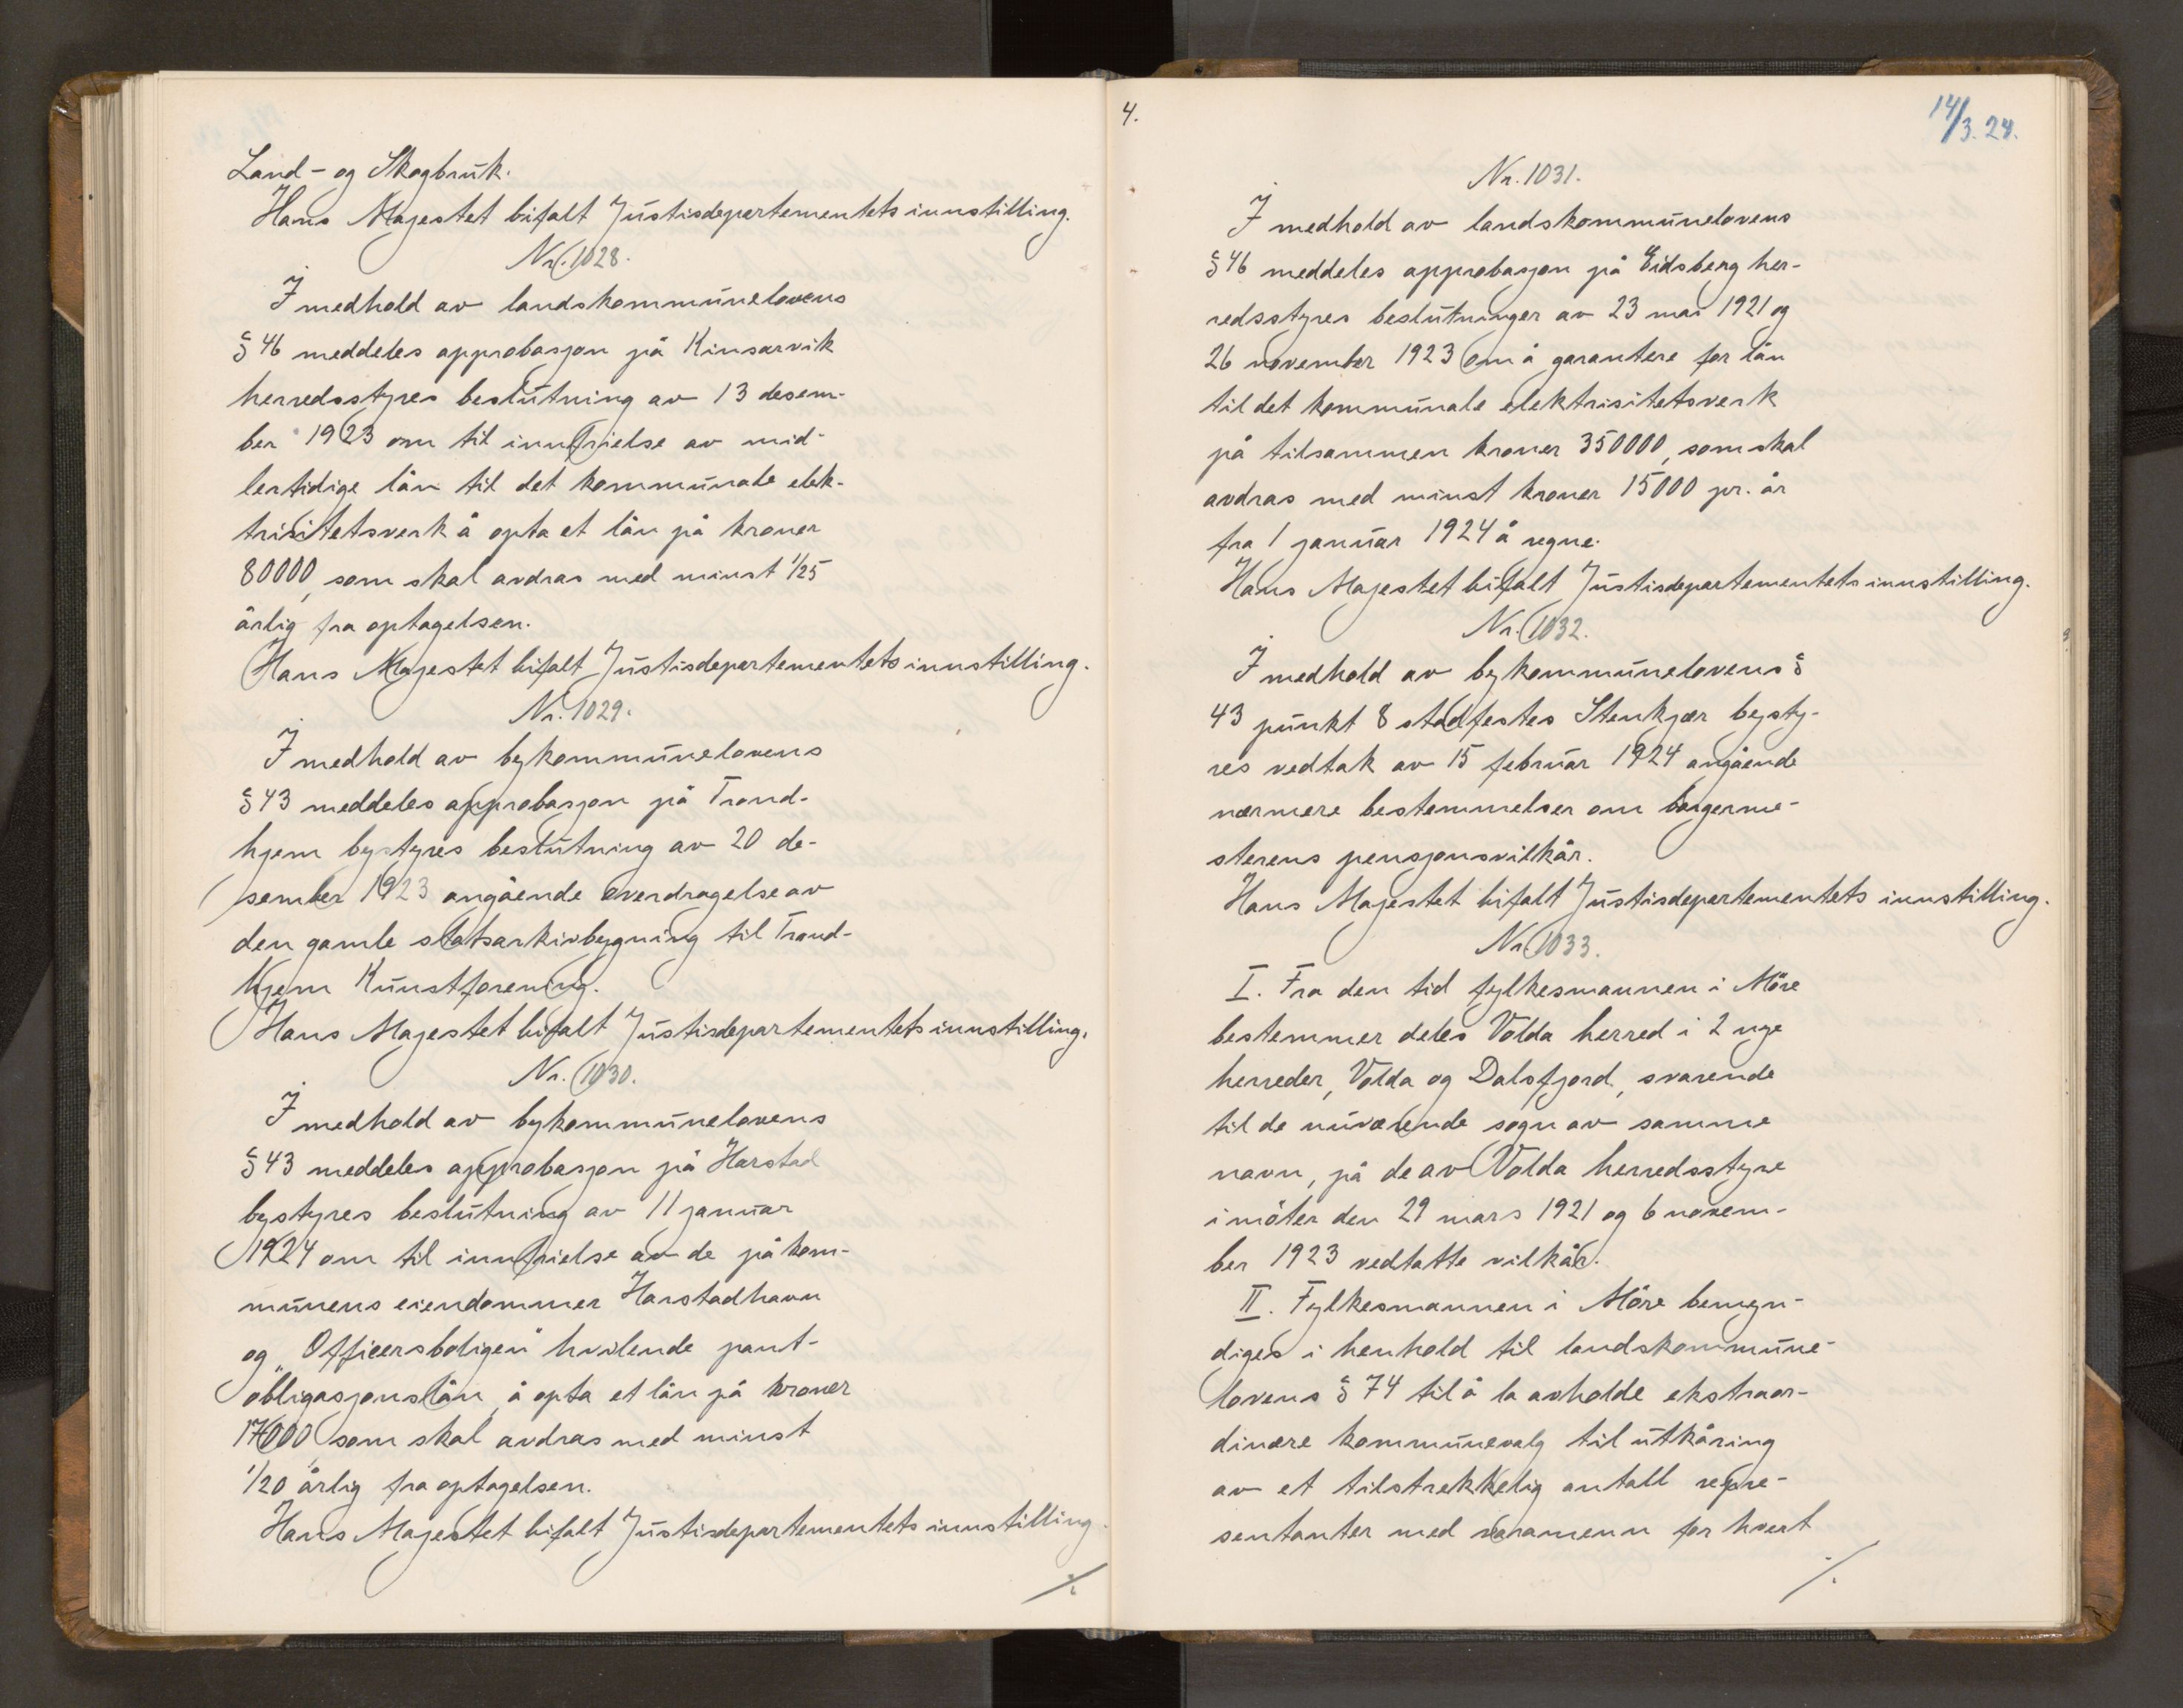 Land- og Skogbruk.
Hans Majestet bifalt Justisdepartementets innstilling.
Nr. 1028.
I medhold av landskommunelovens
§ 46 meddeles approbasjon på Kinsarvik
herredsstyres beslutning av 13 desem-
ber 1923 om til innfrielse av mid-
lertidige lån til det kommunale elek-
trisitetsverk å opta et lån på kroner
80000, som skal avdras med minst 1/25
årlig fra optagelsen.
Hans Majestet bifalt Justisdepartementets innstilling.
Nr. 1029.
I medhold av bykommunelovens
§ 43 meddeles approbasjon på Trond-
hjem bystyres beslutning av 20 de-
sember 1923 angående overdragelse av
den gamle statsarkivbygning til Trond-
hjem Kunstforening.
Hans Majestet bifalt Justisdepartementets innstilling.
Nr. 1030.
I medhold av bykommunelovens
§ 43 meddeles approbasjon på Harstad
bystyres beslutning av 11 januar
1924 om til innfrielse av de på kom-
munens eiendommer Harstadhavn
og „Officersboligen“ hvilende pant-
obligasjonslån, å opta et lån på kroner
17000, som skal avdras med minst
1/20 årlig fra optagelsen.
Hans Majestet bifalt Justisdepartementets innstilling.
./.
4.
14/3. 24.
Nr. 1031.
I medhold av landskommunelovens
§ 46 meddeles approbasjon på Eidsberg her-
redsstyres beslutninger av 23 mai 1921 og
26 november 1923 om å garantere for lån
til det kommunale elektrisitetsverk
på tilsammen kroner 350000, som skal
avdras med minst kroner 15000 pr. år
fra 1 januar 1924 å regne.
Hans Majestet bifalt Justisdepartementets innstilling.
Nr. 1032.
I medhold av bykommunelovens §
43 punkt 8 stadfestes Stenkjær bysty-
res vedtak av 15 februar 1924 angående
nærmere bestemmelser om borgerme-
sterens pensjonsvilkår.
Hans Majestet bifalt Justisdepartementets innstilling.
Nr. 1033.
I. Fra den tid fylkesmannen i Möre
bestemmer deles Volda herred i 2 nye
herreder, Volda og Dalsfjord, svarende
til de nuværende sogn av samme
navn, på de av Volda herredsstyre
i möter den 29 mars 1921 og 6 novem-
ber 1923 vedtatte vilkår.
II. Fylkesmannen i Möre bemyn-
diges i henhold til landskommune-
lovens § 74 til å la avholde ekstraor-
dinære kommunevalg til utkåring
av et tilstrekkelig antall repre-
sentanter med varamenn for hvert
./.